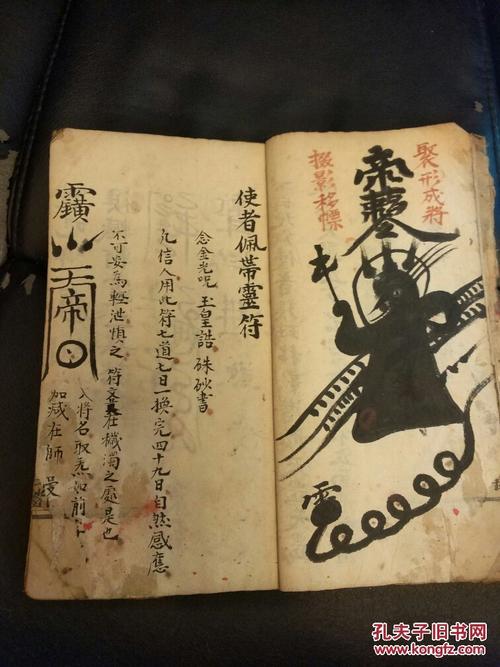 聚形成將
攝影移標
使者佩帶靈符
念金光呪 玉皇誥 硃砂書
凡信人用此符七道七日一換完四十九日自然感應
不可妄為輕泄慎之 符文 在穢濁之處是也
入將名取炁如前
加減在師
孔夫子旧书网
www.kongfz.com